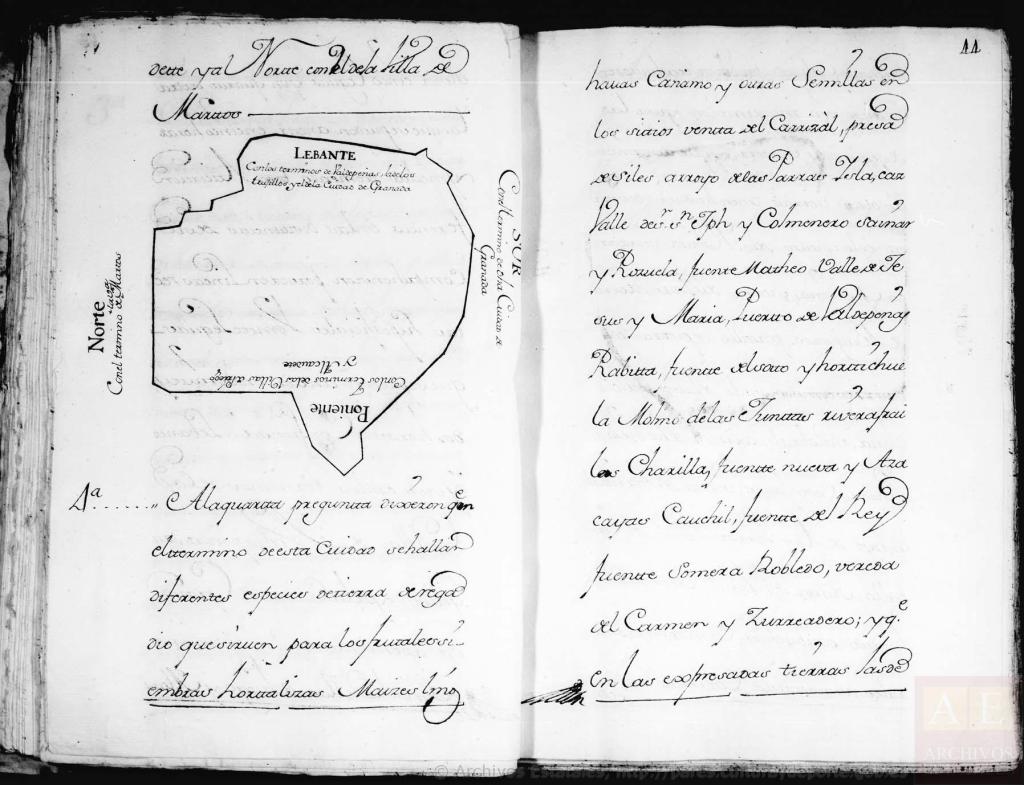 dette y al Norte con el de la Villa de
Marttos
LEBANTE
Con los terminos de Valdepeñas, la de los
trujillos y el de la Ciudad de Granada
SUR
Con el termino de dha Ciudad de
Granada
Norte
Con el termino de Marttos
Poniente
Con los Terminos de las Villas de Priego
y Alcaudete
4ª...... " A la quartta pregunta dixeron qe en
el termino de esta Ciudad se hallan
diferentes especies de tierra de rega
dio que siruen para los frutales si
embras hortalizas Maizes Lino
11
hauas Cañamo y otras Semillas en
los sitios ventta del Carrizal, presa
de Siles, arroyo de las Parras Isla, caz
Valle de Sn Jph y Colmenero
y Rozuela, fuente Matheo Valle de Je
sus y Maria, Puerto de Valdepeñas
Rabitta, fuente del satto y horttichue
la Molino de las Juntas rivera frai
les Charilla, fuente nueva y Aza
cayas Cauchil, fuente del Rey
fuente Somera Robledo, vereda
del Carmen y Zurreadero; y qe
en las expresadas tierras las de
AE
ARCHIVOS
© Archivos Estatales, http://pares.cultura